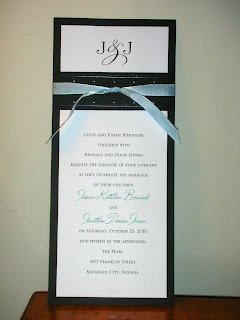 J&J
Louis and Karen
together with
Randall and Diane Jensen
request the pleasure of your company
as they celebrate the marriage
of their children
Jamie Kathleen
Jonathon Jensen
on Saturday, October 23, 2010
five-fifteen in the afternoon
The Pearl
Franklin Street
Michigan City, Indiana